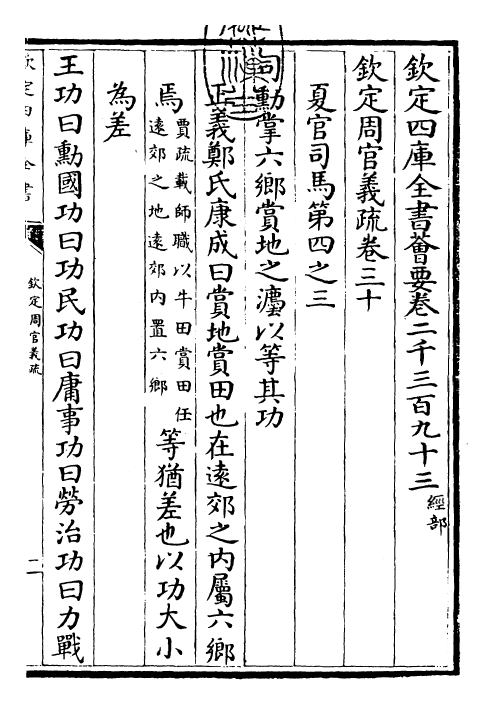 欽定四庫全書薈要卷二千三百九十三 經部
欽定周官義疏卷三十
夏官司馬第四之三
司勳掌六鄉賞地之灋以等其功
正義鄭氏康成曰賞地賞田也在遠郊之内屬六鄉
焉 賈疏載師職以牛田賞田任
遠郊之地遠郊内置六鄉 等猶差也以功大小
為差
王功曰勳國功曰功民功曰庸事功曰勞治功曰力戰
欽定四庫全書
欽定周官義疏